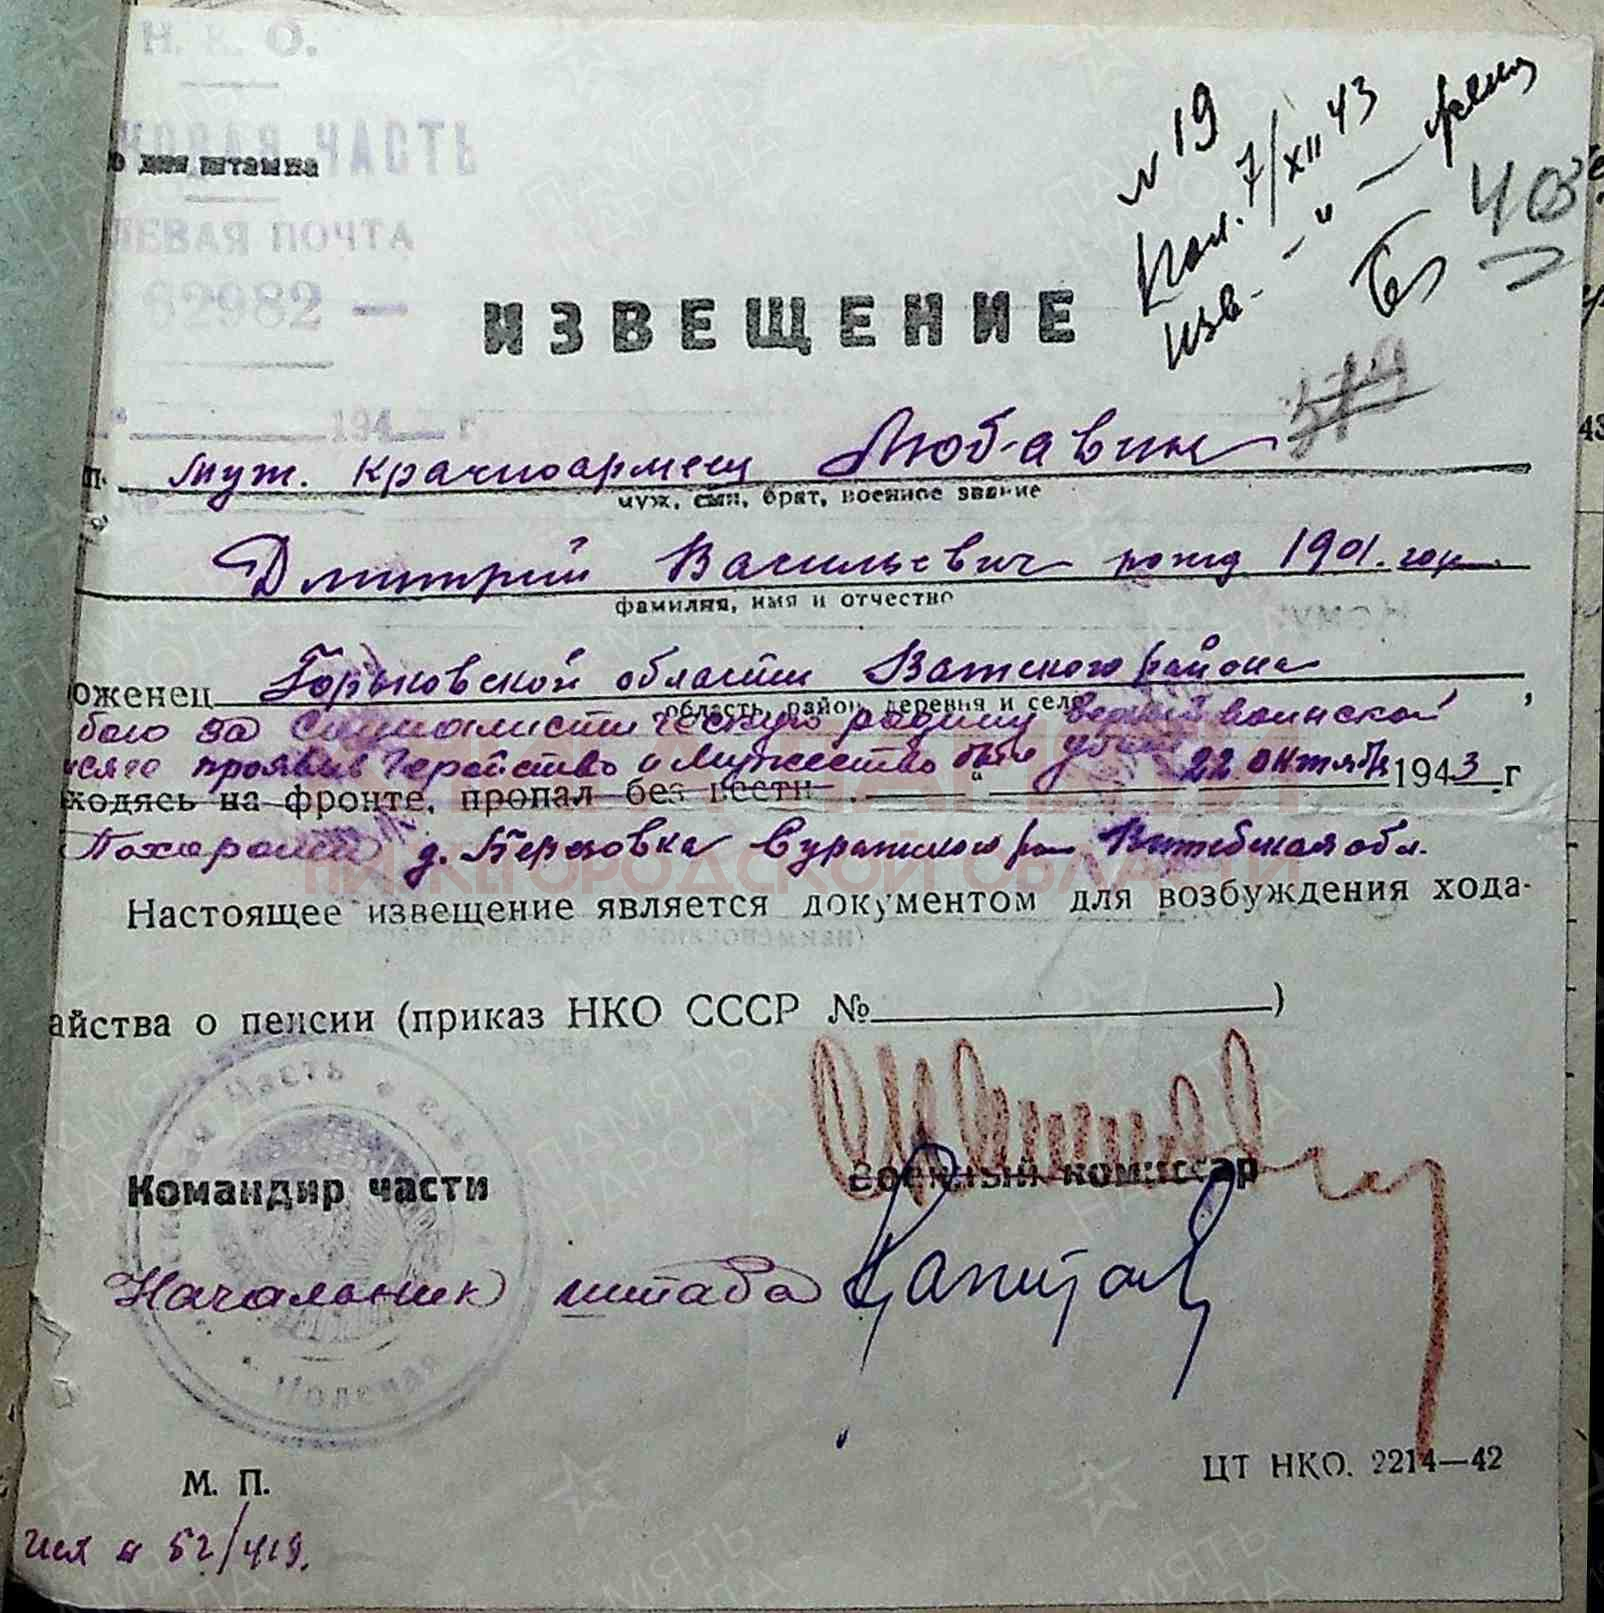 Н. К. О.
КОВАЯ ЧАСТЬ
о для штампа
ЛЕВАЯ ПОЧТА
62982 —
194 г.
№ 19
Пол. 7/XII 43
Изв. - " -
403
ИЗВЕЩЕНИЕ
579
п. муж. красноармеец Любавин
муж, сын, брат, военное звание
Дмитрий Васильевич рожд 1901. год
фамилия, имя и отчество
оженец Горьковской области Вачского района
область, район, деревня и село
бою за Социалистическую родину верный воинской
исяге проявив Геройство и Мужество был убит 22 октября 1943 г
ходясь на фронте, пропал без вести
Похоронен д. Березовка Суражского р-на Витебская обл.
Настоящее извещение является документом для возбуждения хода-
айства о пенсии (приказ НКО СССР № )
Командир части
Военный комиссар
Начальник штаба Капитан
М. П.
ЦТ НКО. 2214—42
исх № 52/419.
КНИГА ПАМЯТИ
НИЖЕГОРОДСКОЙ ОБЛАСТИ
ПАМЯТЬ НАРОДА